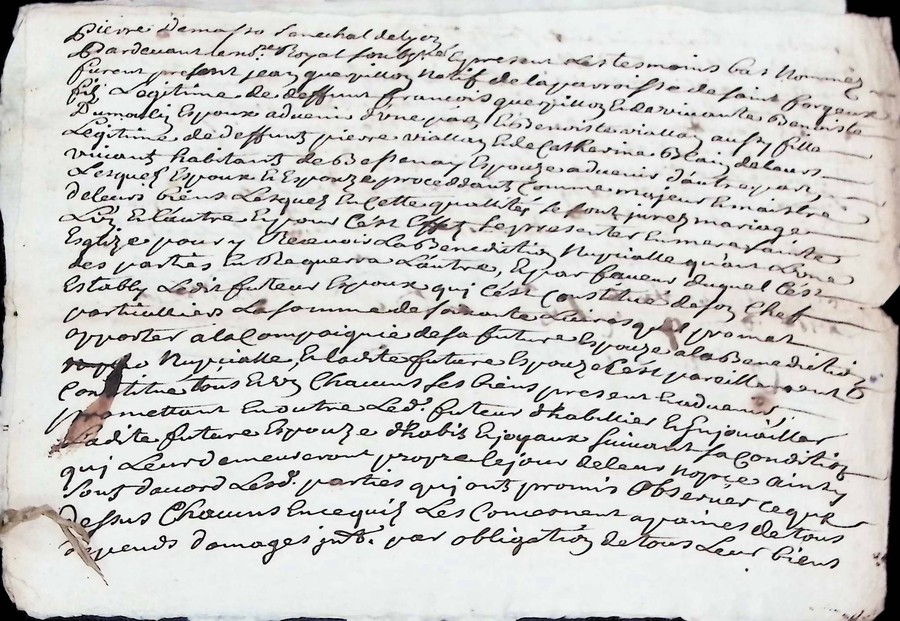 Pierre Demasso Senechal de Lyon
Pardevant le no.re Royal soubz.né Et present Les tesmoins bas Nommez
furent present jean querpillon Natif de la parroisse de saint forgeux
filz Legitime de deffunt francois querpillon Et de vivante Benoiste
Dumoulin Espoux advenir d'vne part Et Benoiste viallon aussy fille
Legitime de deffuntz pierre viallon Et de Catherine Blain de leurs
vivant habitantz de Bessenay Espouze advenir d'autre part
Lesquelz Espoux Et Espouze proceddantz Comme majeur Et maistre
de leurs biens Lesquez En Cette quallités se sont jurez mariage
L'un Et L'autre Et pour C'est Effet se presenter En mere sainte
Esglize pour y Recevoir La Benediction Nupcialle quant L'une
des parties En Requerra L'autre, Et par faveur duquel C'est
Estably Ledit futeur Espoux qui C'est Constitue de son Chef
particulliers La somme de soixante Livres quil promet
apporter a la Compaignie de sa future Espouze a la Benediction
Nupcialle, Et ladite future Espouze C'est pareillement
Constitue tous Et vn Chacuns ses biens present Et advenir,
promettant En outre Led.t futeur d'habillier Et Enjouailler
Ladite future Espouze d'habitz Et joyaux suivant sa Condition
qui Leur demeureront propre le jour de leur nopce ainsy
sont d'acord Lesd. parties qui ont promis Observer ce que
dessus Chacuns En ce qui Les Concernent a paines de tous
depends damages jnt. par obligation de tous Leur biens